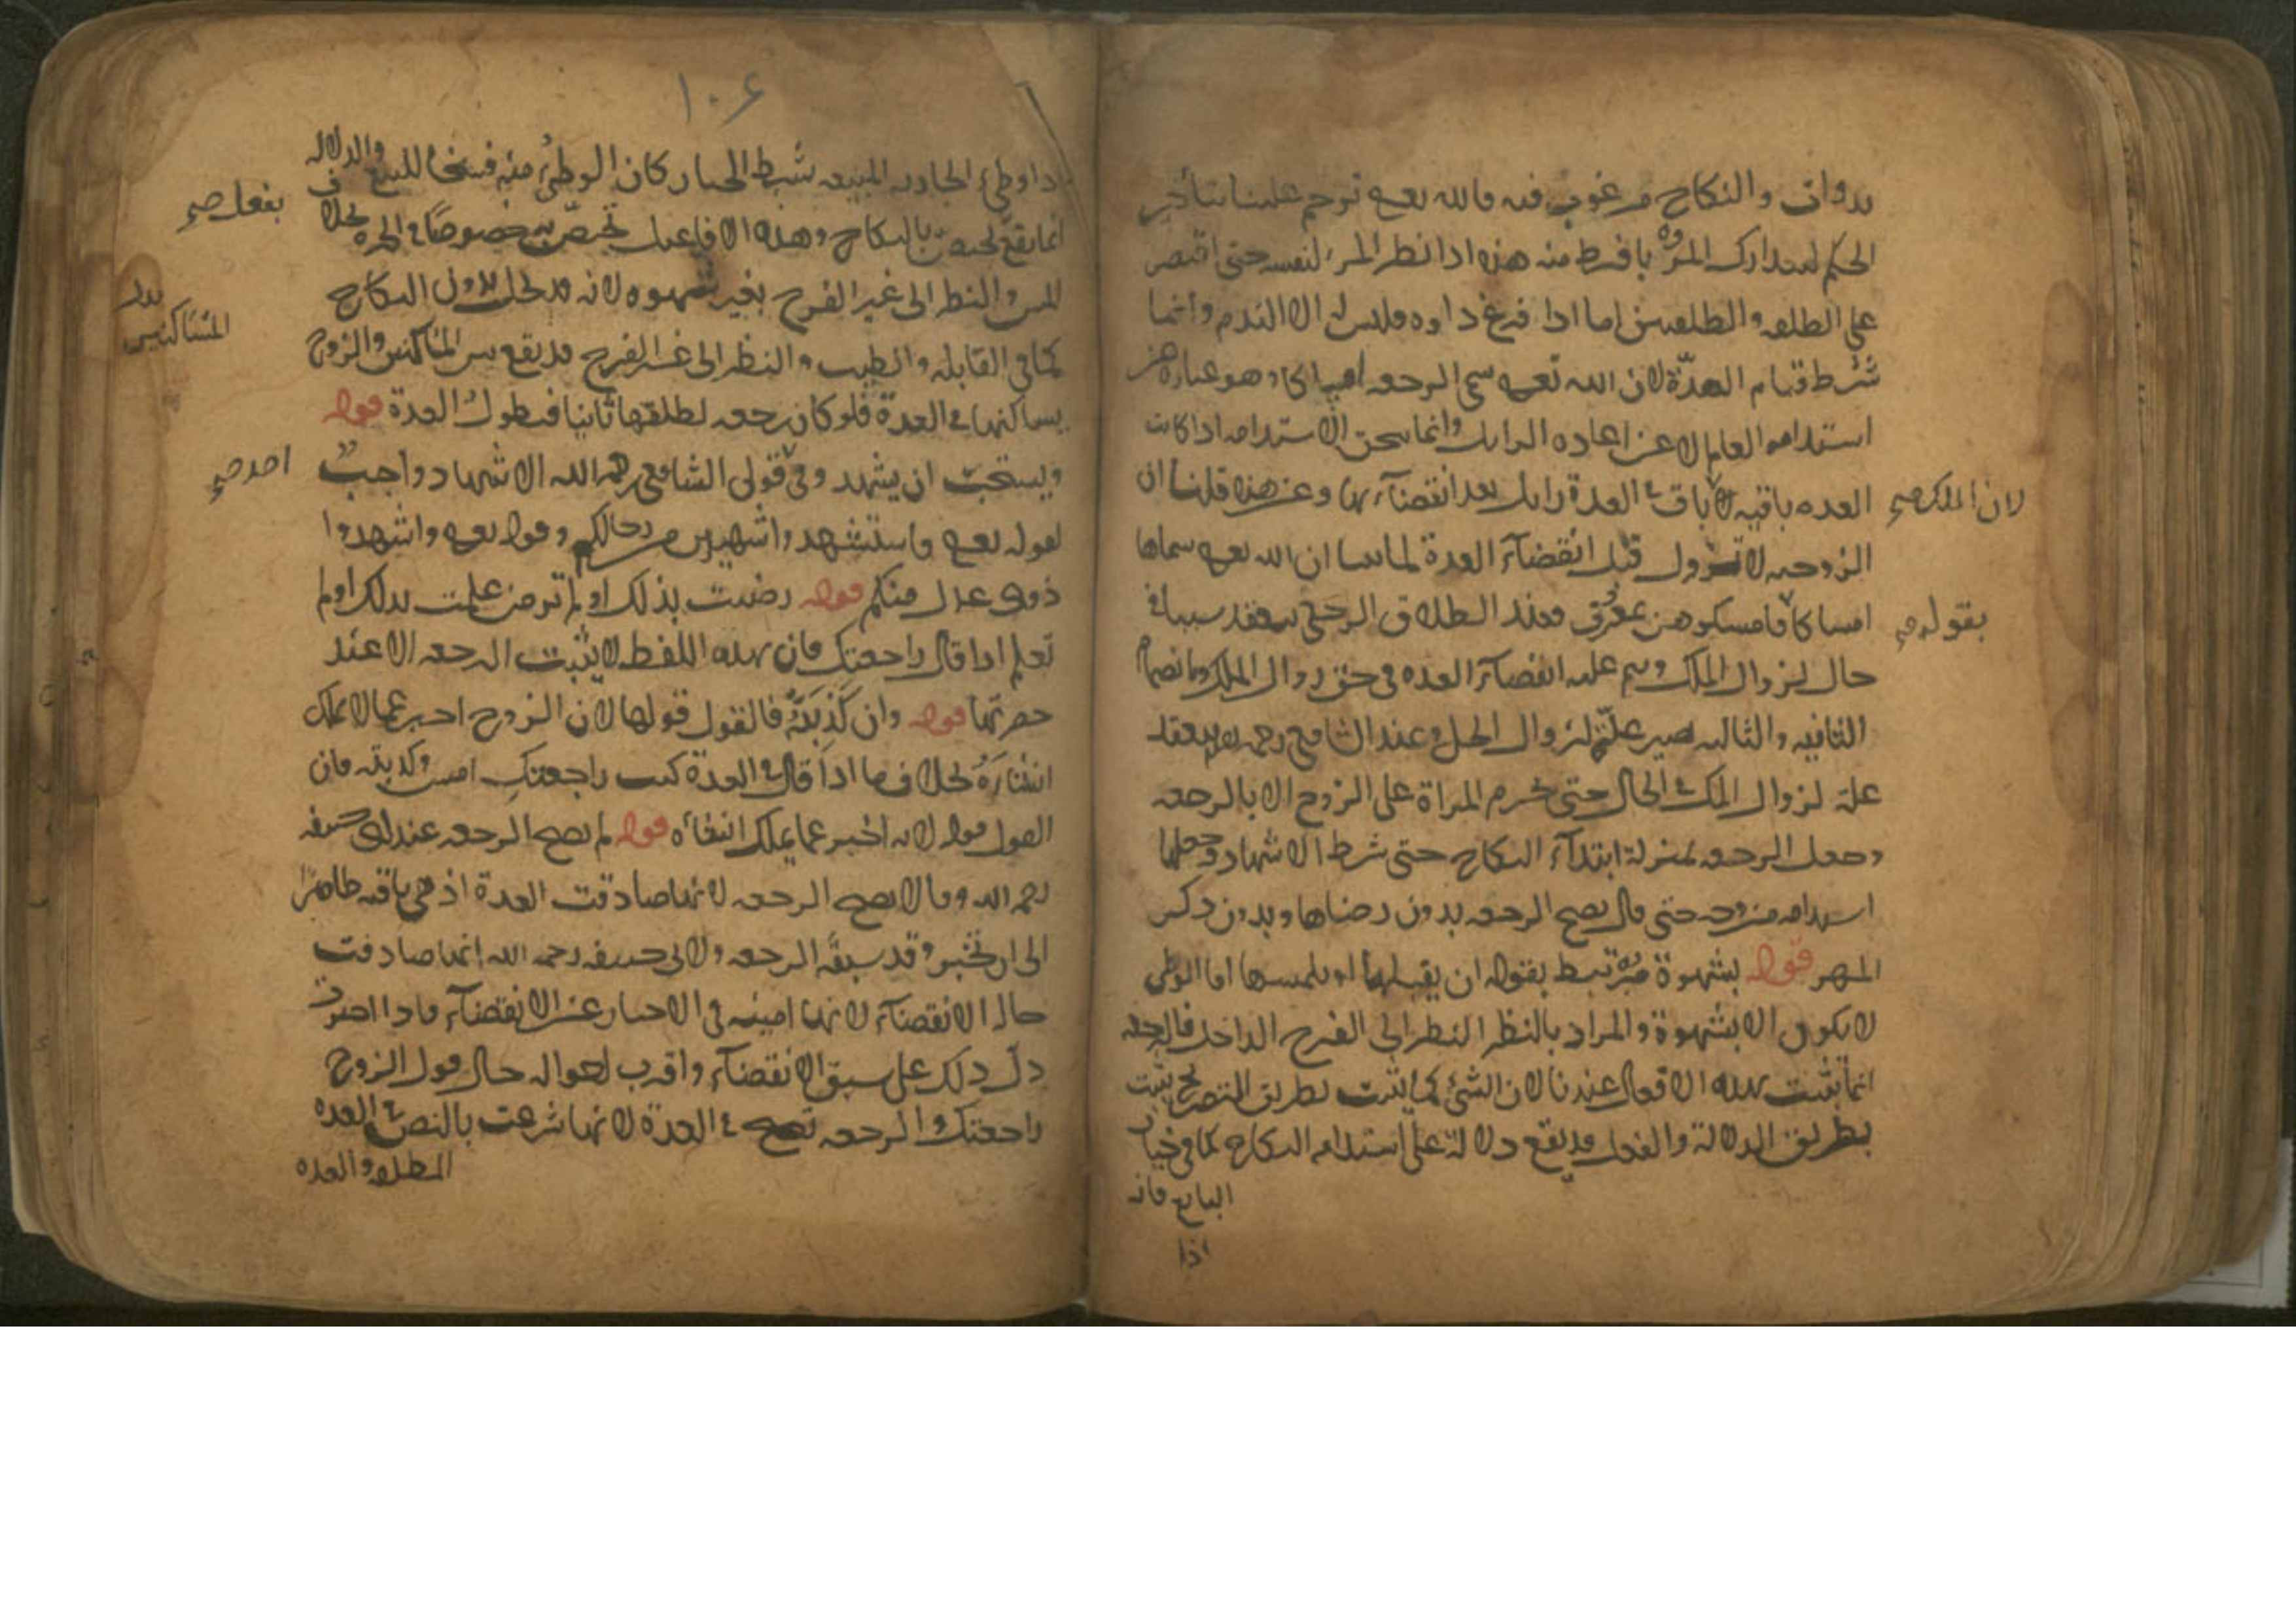 بدوات والنكاح مرغوب فيه فالله تعالى ترحم علينا بتأخير
الحكم ليتدارك المرء ما فرط منه هذه اذا نظر المرء لنفسه حتى اقتصر
على الطلقه والطلقتين اما اذا فرغ داوه فليس له الا الندم وانما
شرط قيام العدّة لان الله تعالى سمى الرجعه امساكا وهو عباره عن
استدامه العام لا عن اعاده الزايل وانما يتحقق الاستدامه اذا كانت
العده باقيه لان الملك باق في العدة زايل بعد انقضآئها وعن هذه قلنا ان
الزوجيه لا تزول قبل انقضآء العدة لما بينا ان الله تعالى سماها
امساكا بقوله فامسكوهن بمعروف فعند الطلاق الرجعي ينعقد سببا في
حال لزوال الملك ويتم عليه انقضآء العده في حق زوال الملك وبانضمام
الثانيه والثالثه يصير علّة لزوال الحل وعند الشافعي رحمه الله ينعقد
علة لزوال الملك في الحال حتى يحرم المراة على الزوج الا بالرجعه
وجعل الرجعه بمنزلة ابتدآء النكاح حتى شرط الاشهاد وجعلها
استدامه من وجه حتى قال يصح الرجعه بدون رضاها وبدون ذكر
المهر قوله بشهوة مرتبط بقوله ان يقبلها او يلمسها اما الوطى
لا يكون الا بشهوة والمراد بالنظر النظر الى الفرج الداخل فالرجعه
انما يثبت بهذه الافعال عندنا لان الشئ كما يثبت بطريق التصريح يثبت
بطريق الدلالة والفعل قد يقع دلالة على استدامه النكاح كما في خيار
البايع فانه
اذا
لان الملك صح
بقوله صح
١٠٦
اذا وطئ الجاريه المبيعه بشرط الخيار كان الوطئ منه فسخا للبيع والدلاله
انما يقع بالنكاح وهذه الافاعيل تختص به خصوصا في الحره بخلاف
المس والنظر الى غير الفرج بغير شهوه لانه قد يحل بدون النكاح
كما في القابلة والطبيب والنظر الى غير الفرج قد يقع بين المساكنين والزوج
يساكنها في العدة فلو كان رجعه لطلقها ثانيا فيطول العدة قوله
ويستحب ان يشهد وفي قولى الشافعي رحمه الله الاشهاد واجب
لقوله تعالى واستشهدوا شهيدين من رجالكم وقوله تعالى واشهدوا
ذوى عدل منكم قوله رضيت بذلك او لم ترض علمت بذلك او لم
تعلم اذا قال راجعتك فان بهذه اللفظ لا يثبت الرجعه الا عند
حضرتها قوله وان كذبته فالقول قولها لان الزوج اخبر عما لا يملك
انشاءه بخلاف ما اذا قال في العدة كنت راجعتك امس وكذبته فان
القول قوله لانه اخبر عما يملك انشاءه قوله لم يصح الرجعه عند ابى حنيفه
رحمه الله وقالا يصح الرجعه لانها صادفت العدة اذ هي باقيه ظاهرا
الى ان تخبر وقد سبقه الرجعه ولابى حنيفه رحمه الله انها صادفت
حاله الانقضآء لانها امينه في الاخبار عن الانقضآء فاذا اخبرت
دل ذلك على سبق الانقضآء واقرب احواله حال قول الزوج
راجعتك والرجعه تصح في العدة لانها شرعت بالنص في العده
المطلقه والعده
بفعل صح
بدل
المتساكنين
احد صح